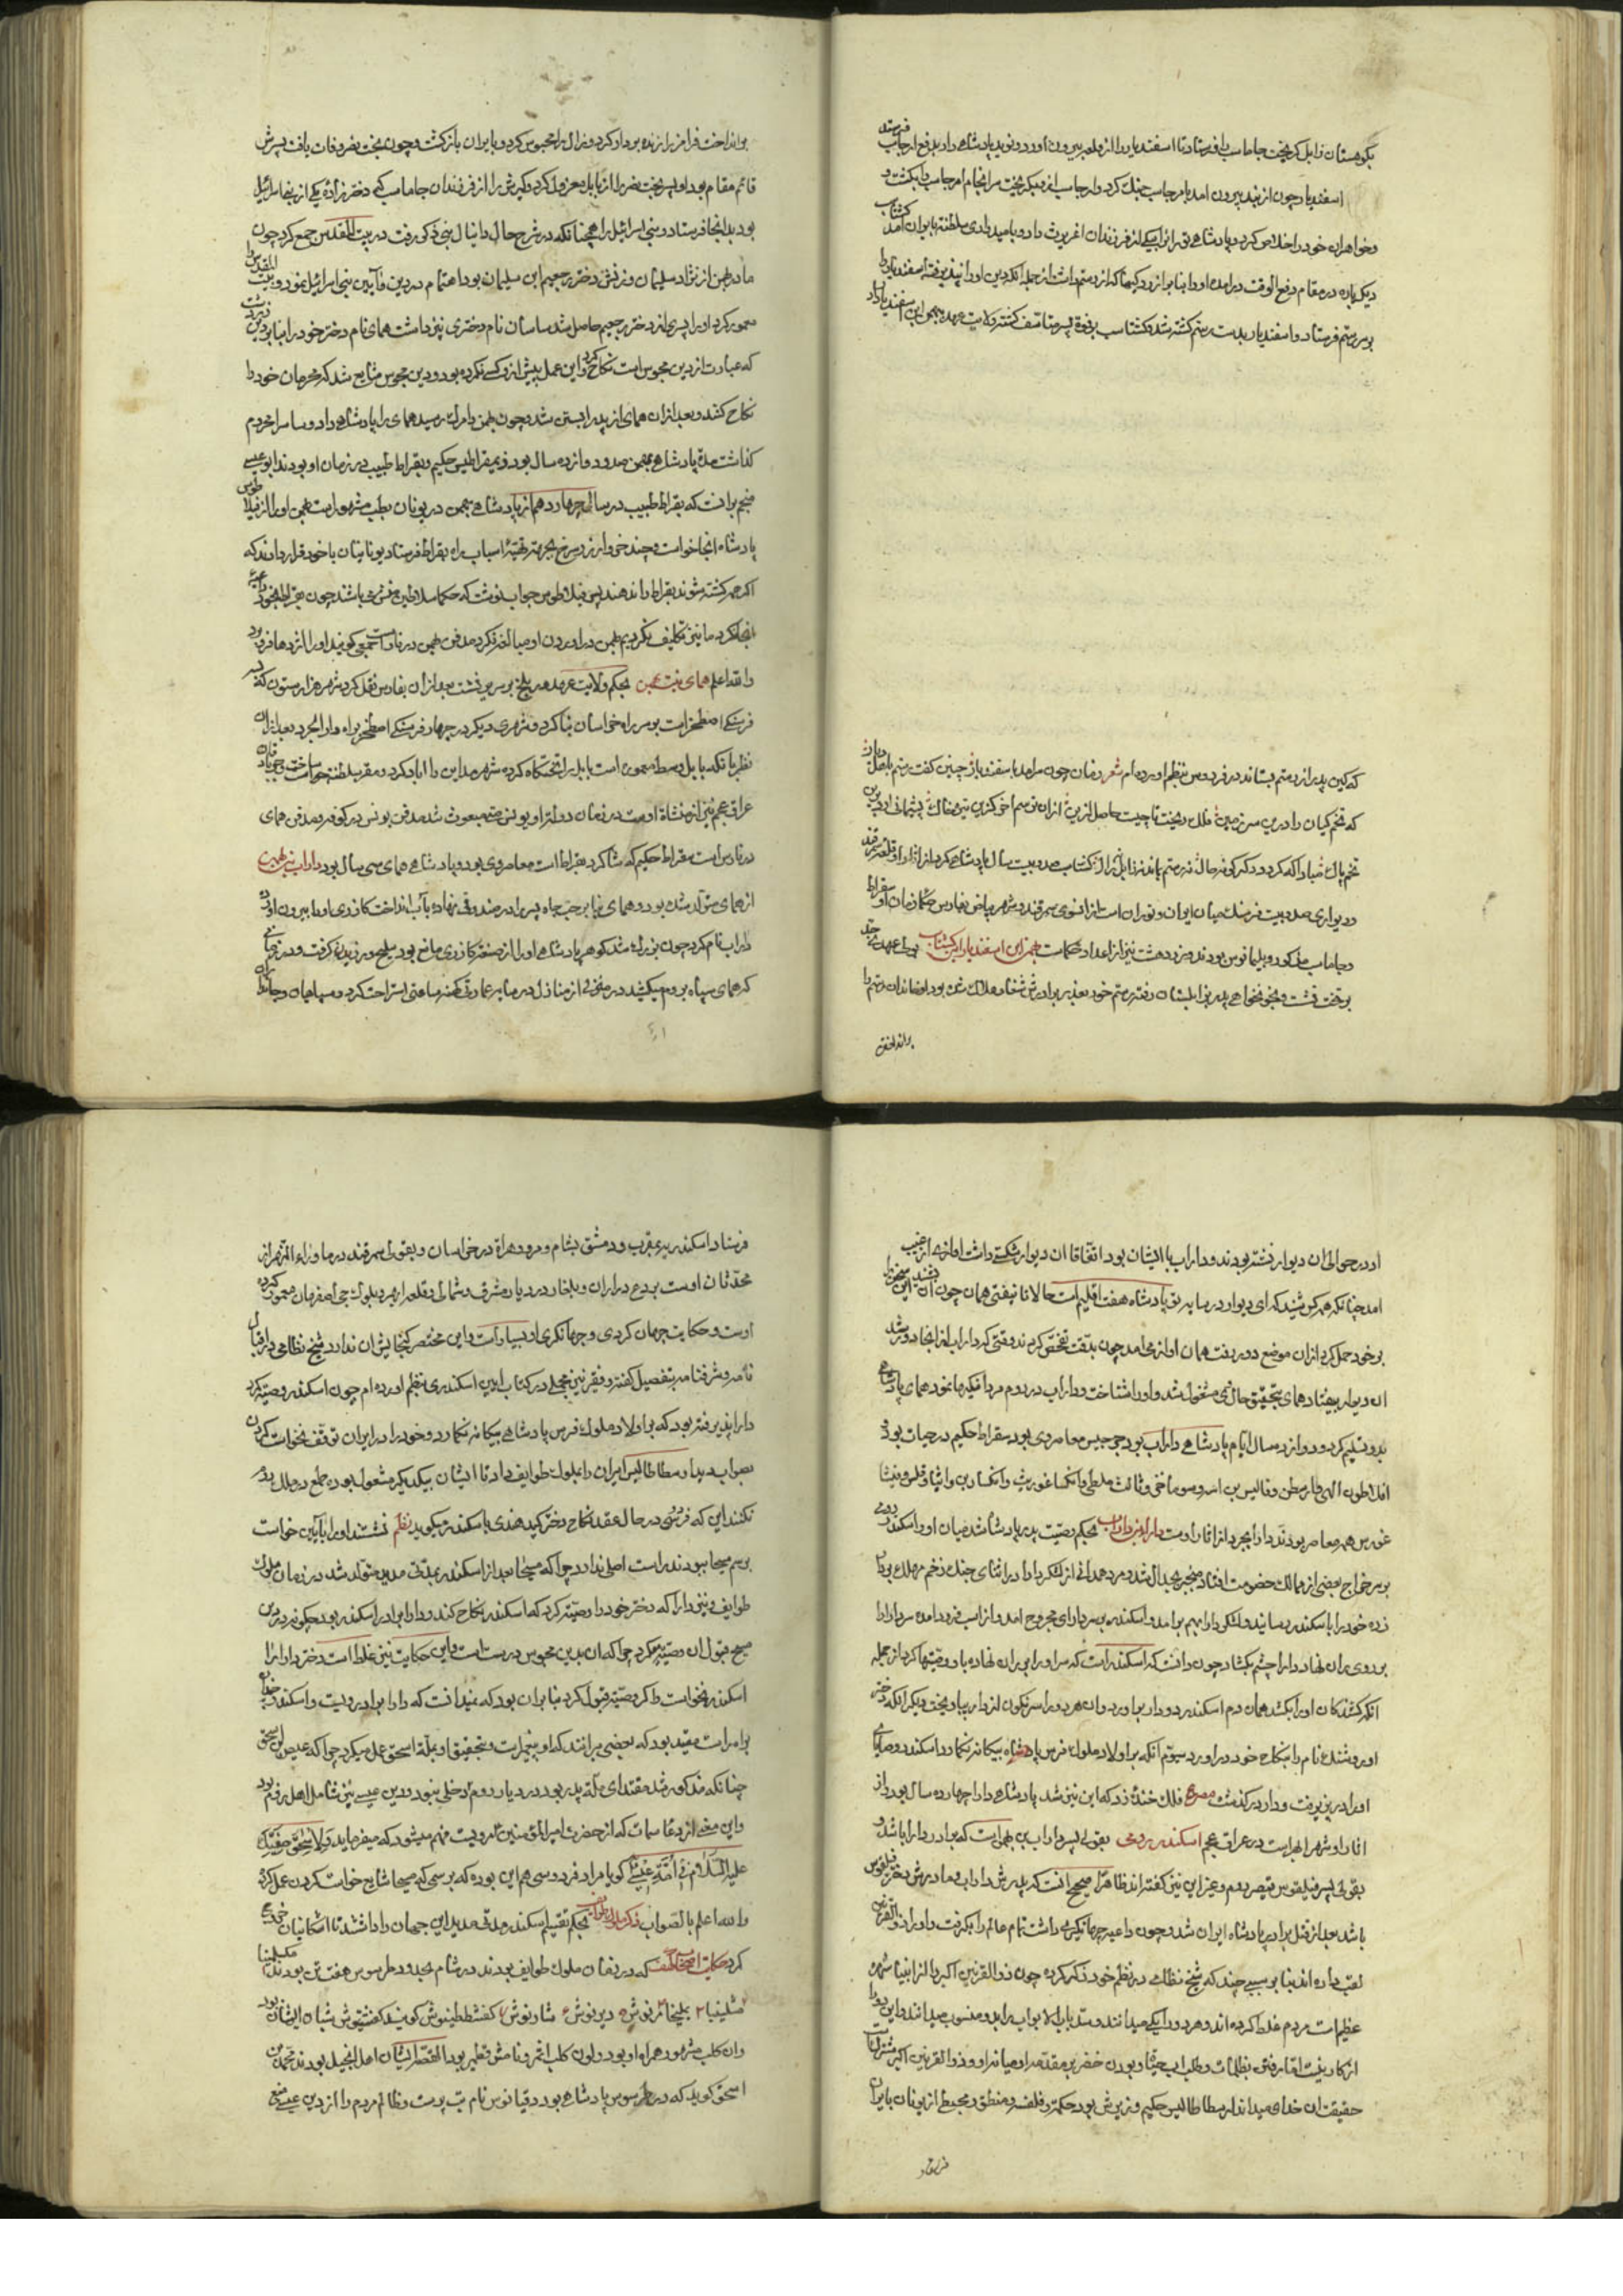 بکوهستان زابل کریخت جاماسب را فرستاد تا اسفندیار را از قلعه بیرون آورد و نوید پادشاهی داد بدفع ارجاسب فرستد
اسفندیار چون از بند بیرون امد با ارجاسب جنک کرد و ارجاسب از و بکریخت سرانجام ارجاسب را بکشت و
و خواهران خود را خلاص کرد و پادشاهی توران را بیکی از فرزندان اغریرث داد و بامید وادی سلطنت بایران امد کشتاسب
دیکرباره در مقام دفع الوقت درامده او را بنابر ازردکیها که از رستم داشت از جمله انکه دین او را نپذیرفته اسفندیار را
بر سر رستم فرستاد و اسفندیار بدست رستم کشته شد و کشتاسب بر فوت پسر متاسف کشته ولایت عهد به بهمن ابن اسفندیار داد
که کین پدر از رستم بستاند در فردوس بنظم اورده ام شعر زمان چون سرامد باسفندیار چنین کفت رستم باصل
که تخم کیان را درین سرزمین فلک ریخت تا چیست حاصل ازین از ان ترسم اخر کزین تیره خاک پشیمانی ارد
تخم پاک مبادا که کردد دکرکونه حال نه رستم بماند نه زابل نه زال کشتاسب صد و بیست سال پادشاهی کرد از اثار او قلعه سمرقند
و دیواری صد و بیست فرسنک میان ایران و توران است از انسوی سمرقند و شهر بیضا در فارس حکما زمان او سقراط
و جاماسب مذکور و بلیناس بودند و زردهشت نیز از اعداد حکماست بهمن ابن اسفندیار ابن کشتاسب بولی عهدی جد
بر تخت نشست و بخونخواهی پدر بزابلستان رفت رستم خود بغدر برادرش شغاد هلاک شده بود او خاندان رستم را
برانداخت
برانداخت فرامرز را زنده بردار کرد و زال را محبوس کرد و بایران بازکشت و چون بخت نصر وفات یافت پسرش
قائم مقام بود او پسر بخت نصر را از بابل معزول کرد و کیرش را از فرزندان جاماسب کی دختر زاده یکی از بنی اسرائیل
بود بدانجا فرستاد و بنی اسرائیل را همچنانکه در شرح حال دانیال نبی ذکر رفت در بیت المقدس جمع کرد چون
مادر بهمن از نژاد سلیمان و زنش دختر رحبعیم ابن سلیمان بود اهتمام در دین و آیین بنی اسرائیل نمود و بیت المقدس را
معمور کرد او را پسری از دختر رحبعیم حاصل شد ساسان نام و دختری نیز داشت همای نام دختر خود را بنابر دین زردشت
که عبارت از دین مجوس است نکاح کرد و این عمل پیش از و کسی نکرده بود و دین مجوس شایع شد که محرمان خود را
نکاح کنند و بعد از ان همای از پدر ابستن شد و چون بهمن را مرک رسید همای را پادشاهی داد و ساسان را محروم
کذاشت مدت پادشاهی بهمن صد و دوازده سال بود ذیمقراطیس حکیم و بقراط طبیب در زمان او بودند ابو عیسی
منجم بر انست که بقراط طبیب در سال چهاردهم از پادشاهی بهمن در یونان بطب مشهور است بهمن او را از فیلاطوس
پادشاه انجا خواست و چند خروار زر سرخ بجهة تهیه اسباب راه بقراط فرستاد یونانیان با خود قرار دادند که
اکر همه کشته شوند بقراط را ندهند پس فیلاطوس جواب نوشت که حکما سلاطین منش باشند چون بقراط بخود
ابا کرد ما نیز تکلیف نکردیم بهمن در اوردن او مبالغه نکرد مدفن بهمن در فارس است جمعی کویند او را اژدها فرو برد
و الله اعلم همای بنت بهمن بحکم ولایت عهد در بلخ بر سریر نشست بعد از ان بفارس نقل کرد شهر هزار ستون که
فرسنکی اصطخر است بر سر راه خراسان بنا کرد و شهری دیکر در چهار فرسنکی اصطخر براه دارابجرد بعد از ان
نظر بانکه بابل وسط معموره است بابل را تختکاه کرده شهر مداین را اباد کرد و مقر سلطنت خواست ساخت جرباذقان
عراق عجم نیز از منشات اوست در زمان دولت او یونس متی مبعوث شد مدفن یونس در کوفه و مدفن همای
در فارس است سقراط حکیم که شاکرد بقراط است معاصر وی بود و پادشاهی همای سی سال بود داراب بن بهمن
از همای متولد شده بود و همای بنابر حب جاه پسر را در صندوق نهاده بآب انداخت کازری او را بیرون اورده
داراب نام کرد چون بزرک شد کوهر پادشاهی او را از صنعت کازری مانع بود سلیح ورزیدن کرفت و در زمانی
که همای سپاه بروم میکشید در منزلی از منازل در سایه عمارتی کهنه ساعتی استراحت کرد و سپاهیان و حافظان
او در حوالی ان دیوار نشسته بودند و داراب با ایشان بود اتفاقا ان دیوار شکستی داشت اوازی از غیب
امد چنانکه همه کس شنید که ای دیوار در سایه تو پادشاه هفت اقلیم است حالا تا نیفتی همان چون ان سخن را شنیدند این
بر خود حمل کرد از ان موضع دور رفت همان اواز می امد چون بدقت تفحص کردند وقتی که داراب از انجا دور شد
ان دیوار بیفتاد همای بتحقیق حال وی مشغول شد و او را شناخت و داراب در روم مردانکیها نمود همای پادشاهی
بدو تسلیم کرد و دوازده سال ایام پادشاهی داراب بود جرجیس معاصر وی بود سقراط حکیم در حیات بود و
افلاطون الهی
غورس همه معاصر بودند دارابجرد از اثار اوست دارا بن داراب بحکم وصیت پدر پادشاه شد میان او و اسکندر رومی
بر سر خراج بعضی از ممالک خصومت افتاد منجر بجدال شد دو مرد همدانی از لشکر دارا در اثنای جنک زخم مهلک بر دارا
زده خود را باسکندر رسانیدند لشکر دارا بهم برامد و اسکندر بر سر دارای مجروح امد و از اسب فرود امده سر دارا را
بر روی ران نهاد دارا چشم بکشاد چون دانست که اسکندر است که سر او را بر ران نهاده باو وصیتها کرد از جمله
انکه کشندکان او را بکشد همان دم اسکندر دو دار براورد و ان هر دو را سرنکون از دار بیاویخت دیکر انکه دختر
او روشنک نام را بنکاح خود دراورد سیوم انکه بر اولاد ملوک فرس پادشاه بیکانه نکمارد اسکندر وصایای
او را درپذیرفت و دارا درکذشت مصرع فلک خنده زد که این نیز شد پادشاهی دارا چهارده سال بود از
اثار او شهر ابهر است در عراق عجم اسکندر رومی بقولی پسر داراب بن بهمن است که برادر دارا باشد و
بقولی پسر فیلقوس قیصر روم و غیر این نیز کفته اند ظاهرا صحیح انست که پدرش داراب و مادرش دختر فیلقوس
باشد بعد از قتل برادر پادشاه ایران شد و چون داعیه جهانکیری داشت تمام عالم را بکرفت و او را ذوالقرنین
لقب داده اند بنابر سببی چند که شیخ نظامی در نظم خود ذکر کرده چون ذوالقرنین اکبر را از انبیا شمرده
عظیم است مردم غلط کرده اند و هر دو را یکی میدانند و سد باب الابواب را بدو منسوب میدانند و این
از کار نیست اما رفتن بظلمات و طلب اب حیات و بودن خضر بر مقدمه او میانه او و ذوالقرنین اکبر مشترک است
حقیقت ان خدای میداند ارسطاطالیس حکیم وزیرش بود حکمت و فلسفه و منطق و مجسطی از یونان بایران
فرستاد
فرستاد اسکندریه بمغرب و دمشق بشام و مرو و هراة در خراسان و بقولی سمرقند در ماوراء النهر از
محدثان اوست بردع در اران و بلغار در دیار مشرق و شمالی و قلعه
اوست و حکایت جهان کردی و جهانکری او بسیار است و این مختصر کنجایش ان ندارد شیخ نظامی در اقبال
نامه و شرفنامه بتفصیل کفته و فقیر نیز مجملی در کتاب ایین اسکندری بنظم اورده ام چون اسکندر وصیت
دارا پذیرفته بود که بر اولاد ملوک فرس پادشاهی بیکانه نکمارد و خود در ایران توقف نخواست کرد
بصوابدید ارسطاطالیس ایران را بملوک طوایف داد تا ایشان بیکدیکر مشغول بوده طمع در ملک روم
نکنند این که فردوسی در حال عقد نکاح دختر کید هندی باسکندر میکوید نظم نشستند او را بآیین خواست
برسم مسیحا ببودند راست اصلی ندارد چرا که مسیحا بعد از اسکندر بمدتی مدید متولد شد در زمان ملوک
طوایف و نیز دارا که دختر خود را وصیت کرد که اسکندر بنکاح کند و دارا برادر اسکندر بود چکونه در دین
مسیح قبول ان وصیت میکرد چرا که ان بدین مجوس درست است و این حکایت نیز غلط است دختر دارا را
اسکندر نخواست و اکر وصیت قبول کرد بنابران بود که نمیدانست که دارا برادر ویست و اسکندر
مقید بود که بعضی برانند که او پیغمبر است و بتحقیق او بملت اسحق عمل میکرد چرا که عیص بن اسحق
چنانکه مذکور شد مقتدای ملت پدر بود در دیار روم و دخلی نبود و دین عیسی نیز شامل اهل روم بود
و این معنی از دعا سمات که از حضرت امیر المؤمنین مرویست فهم میشود که میفرماید و لاسحق صفیک
علیه السلام فی امة عیسی کویا مراد فردوسی هم این بوده که برسمی که مسیحا شایع خواست کردن عمل کرد
و الله اعلم بالصواب ذکر ملوک طوایف بحکم تقسیم اسکندر مدتی مدید این جهان را داشتند تا اشکانیان خروج
کرد حکایت اصحاب کهف که در زمان ملوک طوایف بودند در شام بحدود طرسوس هفت تن بودند مکسلمینا
مثلینیا ۲ یملیخا ۳ مرنوش ۴ دبرنوش ۵ شاذنوش ۶ کفشططیوش کویند کفشتیوش شبان ایشان بود
و ان کلب مشهور همراه او بود و لون کلب اغر و نامش قطمیر بود القصه ایشان اهل انجیل بودند محمد بن
اسحق کوید که در طرسوس پادشاهی بود دقیانوس نام بت پرست و ظالم مردم را از دین عیسی منع